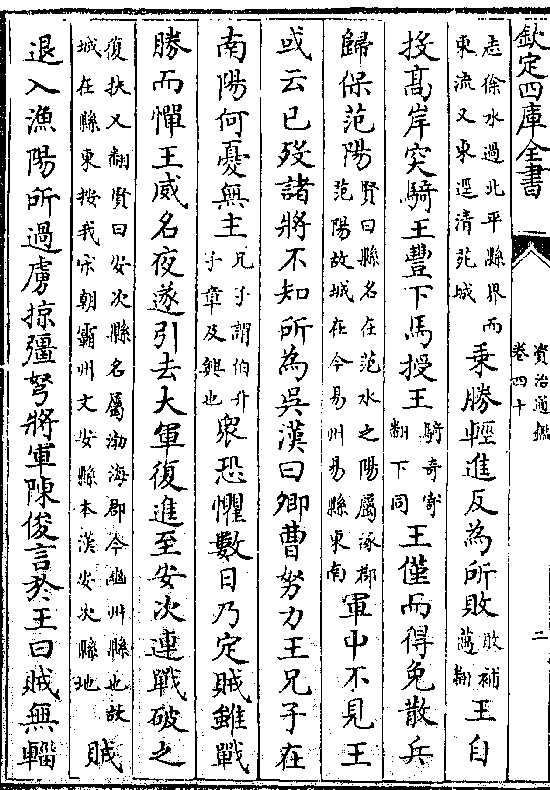 欽定四庫全書
資治通鑑
卷四十
二
志徐水過北平縣界而
東流又東逕清苑城
乗勝輕進反為所敗
敗補
邁翻
王自
投髙岸突騎王豐下馬授王
騎奇寄
翻下同
王僅而得免散兵
歸保范陽
賢曰縣名在范水之陽屬涿郡
范陽故城在今易州易縣東南
軍中不見王
或云已歿諸將不知所為吳漢曰卿曹努力王兄子在
南陽何憂無主
兄子謂伯升
子章及興也
衆恐懼數日乃定賊雖戰
勝而憚王威名夜遂引去大軍復進至安次連戰破之
復扶又翻賢曰安次縣名屬渤海郡今幽州縣也故
城在縣東按我宋朝霸州文安縣本漢安次縣地
賊
退入漁陽所過虜掠彊弩將軍陳俊言於王曰賊無輜